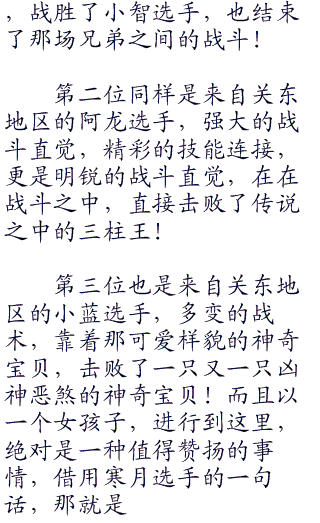 ，战胜了小智选手，也结束
了那场兄弟之间的战斗！
第二位同样是来自关东
地区的阿龙选手，强大的战
斗直觉，精彩的技能连接，
更是明锐的战斗直觉，在在
战斗之中，直接击败了传说
之中的三柱王！
第三位也是来自关东地
区的小蓝选手，多变的战
术，靠着那可爱样貌的神奇
宝贝，击败了一只又一只凶
神恶煞的神奇宝贝！而且以
一个女孩子，进行到这里，
绝对是一种值得赞扬的事
情，借用寒月选手的一句
话，那就是